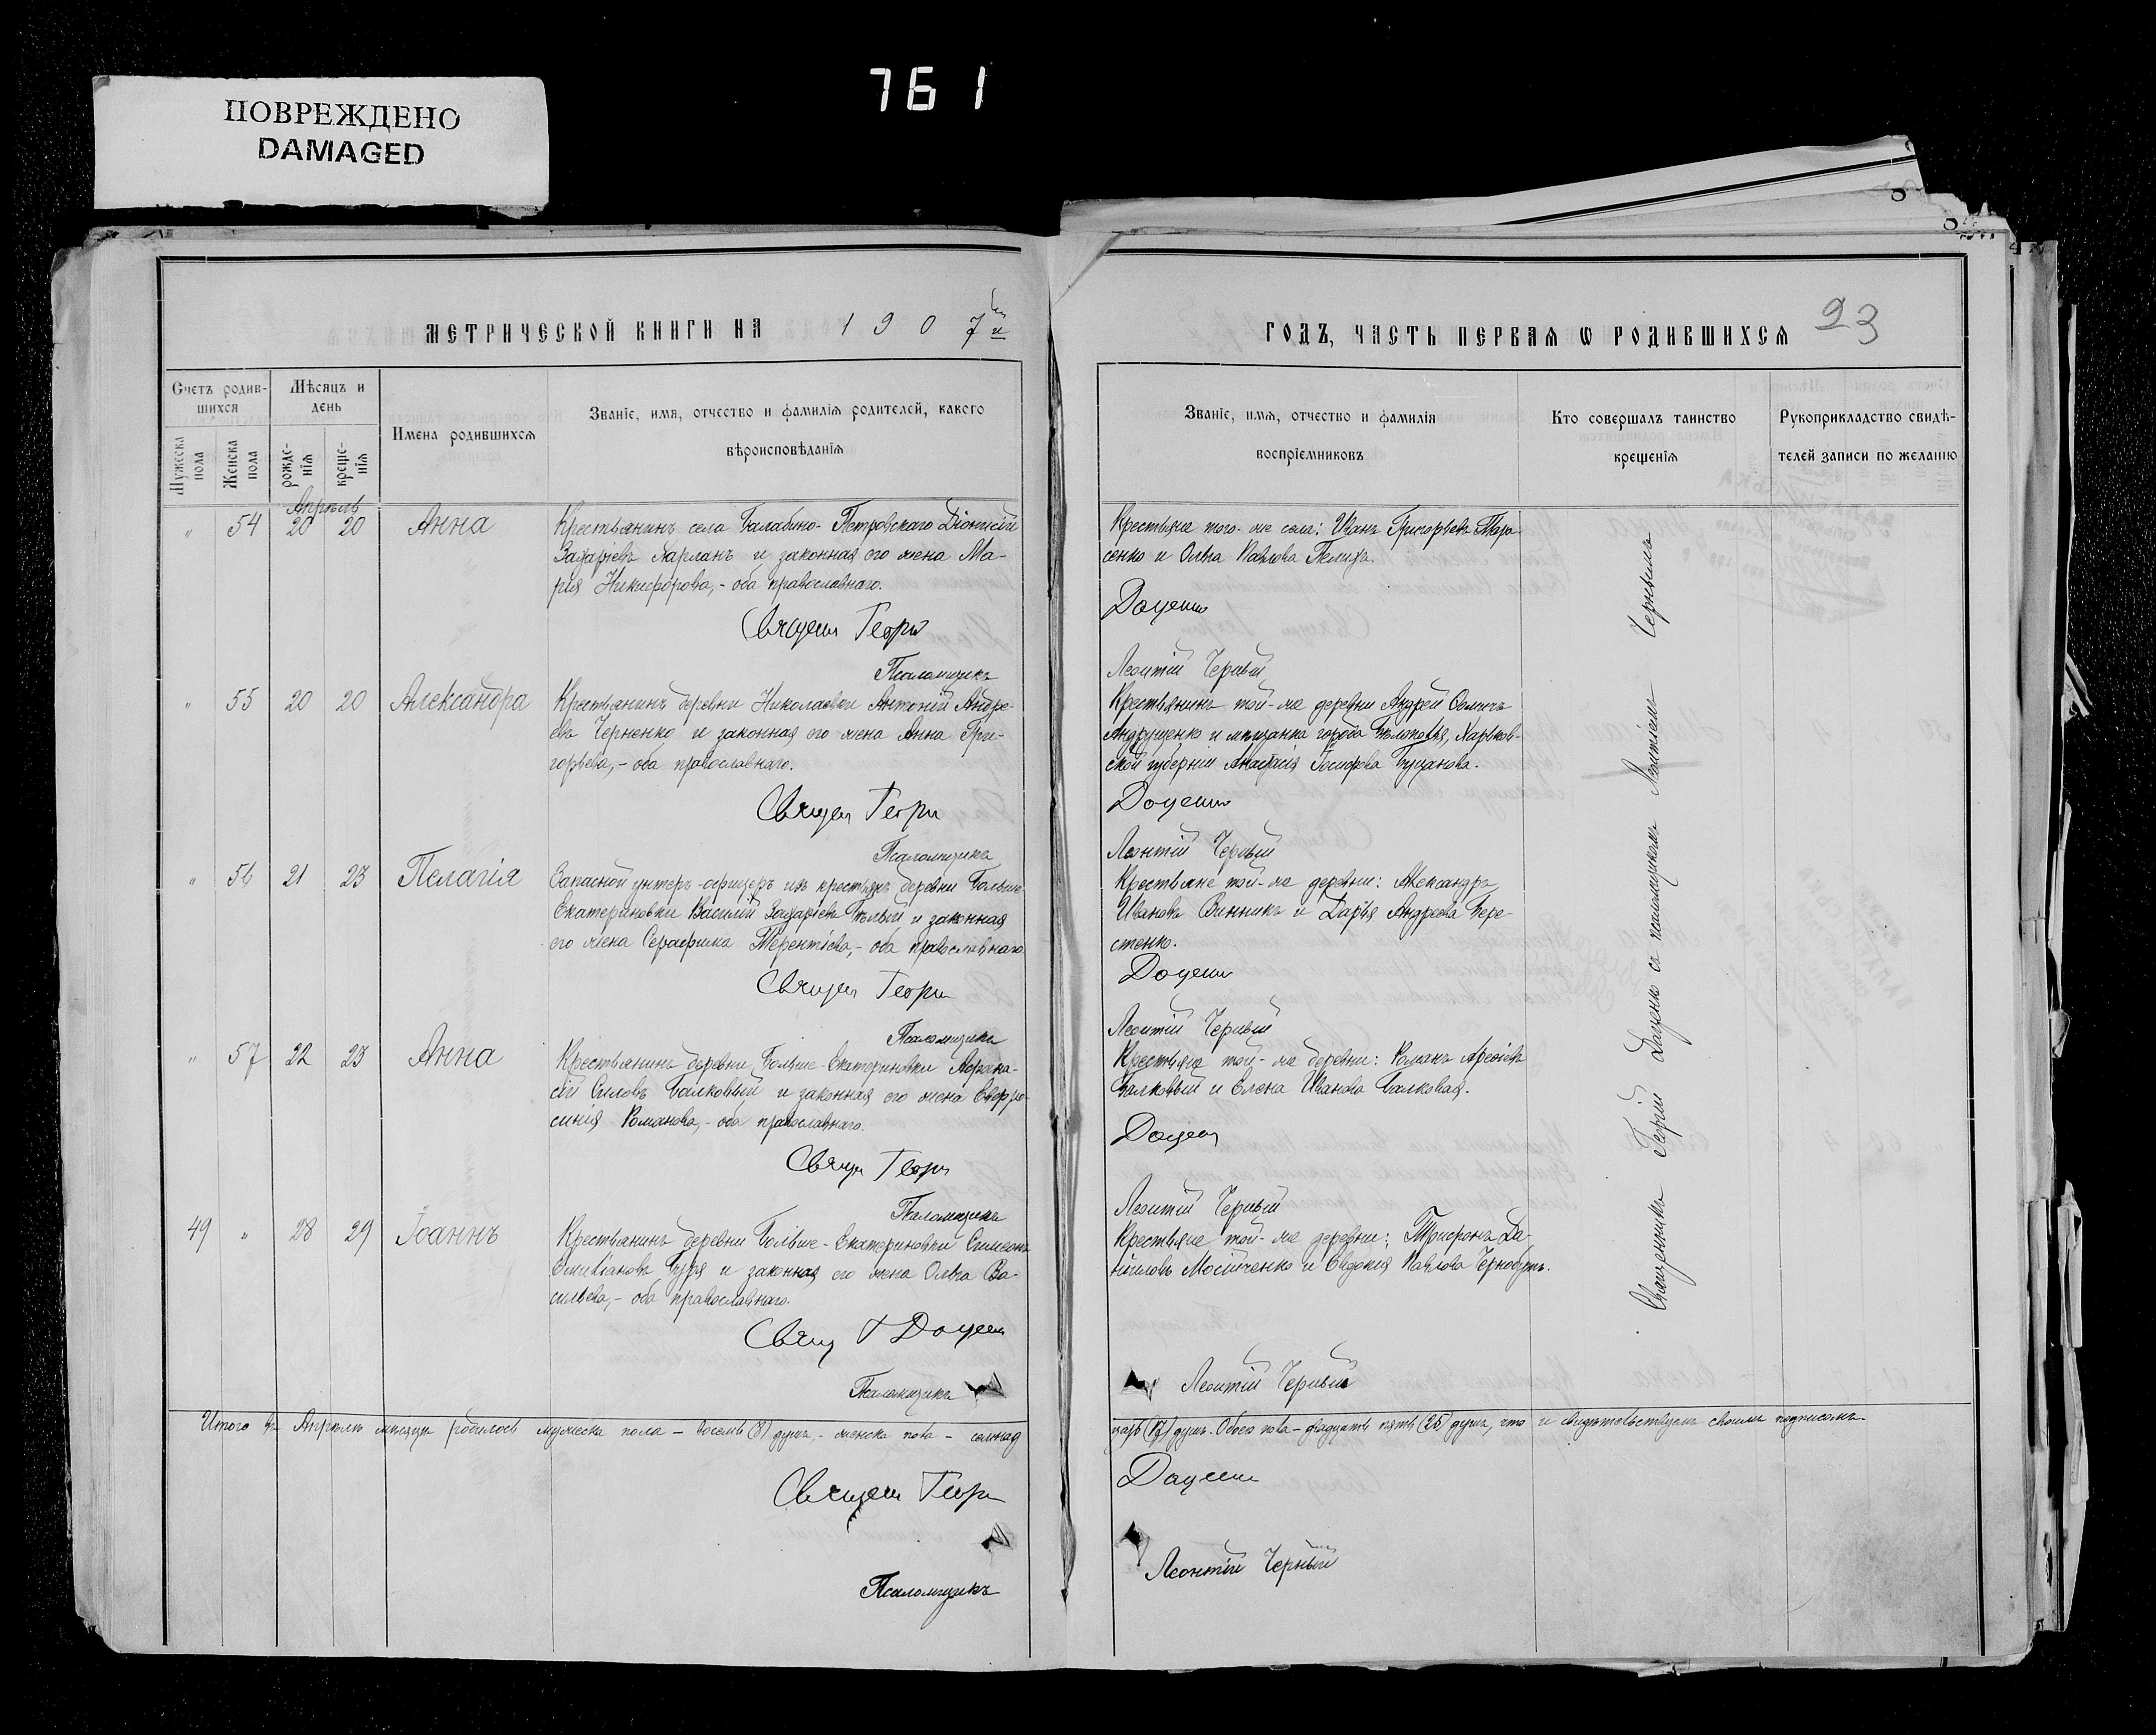 761
ПОВРЕЖДЕНО
DAMAGED
МЕТРИЧЕСКОЙ КНИГИ НА 1907й
ГОДЪ, ЧАСТЬ ПЕРВАЯ Ѡ РОДИВШИХСЯ
23
Счетъ родив-
шихся
Мужеска пола
Женска пола
Мѣсяцъ и
день
рожде-
нія
креще-
нія
Имена родившихся
Званіе, имя, отчество и фамилія родителей, какого
вѣроисповѣданія
Званіе, имя, отчество и фамилія
воспріемниковъ
Кто совершалъ таинство
крещенія
Рукоприкладство свидѣ-
телей записи по желанію
Апрѣль
" 54 20 20 Анна
Крестьянинъ села Балабино-Петровскаго Діонисій
Захаріевъ Харланъ и законная его жена Ма-
рія Никифорова,- оба православнаго.
Священ Георг
Псаломщикъ
Крестьяне того-же села: Иванъ Григорьевъ Тара-
сенко и Ольга Павлова Пелиха.
Доценко
Леонтій Черный
" 55 20 20 Александра
Крестьянинъ деревни Николаевки Антоній Андре-
евъ Черненко и законная его жена Анна Гри-
горьева,- оба православнаго.
Священ Георг
Псаломщикъ
Крестьянинъ той-же деревни Андрей
Андрущенко и мѣщанка города Бѣлополья, Харьков-
ской губерніи Анастасія Іосифова Буцанова.
Доценко
Леонтій Черный
" 56 21 23 Пелагія
Запасной унтеръ-офицеръ изъ крестьянъ деревни Больше-
Екатериновки Василій Захаріевъ Бѣлый и законная
его жена Серафима Терентіева,- оба православнаго.
Священ Георг
Псаломщикъ
Крестьяне той-же деревни: Александръ
Ивановъ Винникъ и Дарья Андреева Бере-
стенко.
Доценко
Леонтій Черный
" 57 22 23 Анна
Крестьянинъ деревни Больше-Екатериновки Афана-
сій Силовъ Балковый и законная его жена Евфро-
синія Романова,- оба православнаго.
Свящ Георг
Псаломщикъ
Крестьяне той-же деревни: Романъ
Балковый и Елена Иванова Балковая.
Доцен
Леонтій Черный
49 " 28 29 Іоаннъ
Крестьянинъ деревни Больше-Екатериновки Симеонъ
Емиліановъ Буря и законная его жена Ольга Ва-
сильева,- оба православнаго.
Свящ Г Доцен
Псаломщикъ
Крестьяне той-же деревни: Трифонъ Да-
ніиловъ Мосіиченко и Евдокія Павлова Чернобукъ.
Леонтій Черный
Священникъ Георгій Даценко съ псаломщикомъ Леонтіемъ Чернымъ
Итого въ Апрѣлѣ мѣсяцѣ родилось мужеска пола – восемь (8) душъ, – женска пола – семнад
цать (17) душъ. Обоего пола – двадцать пять (25) душъ, что и свидѣтельствуемъ своимъ подписомъ.
Священ Георг
Доценко
Псаломщикъ
Леонтій Черный